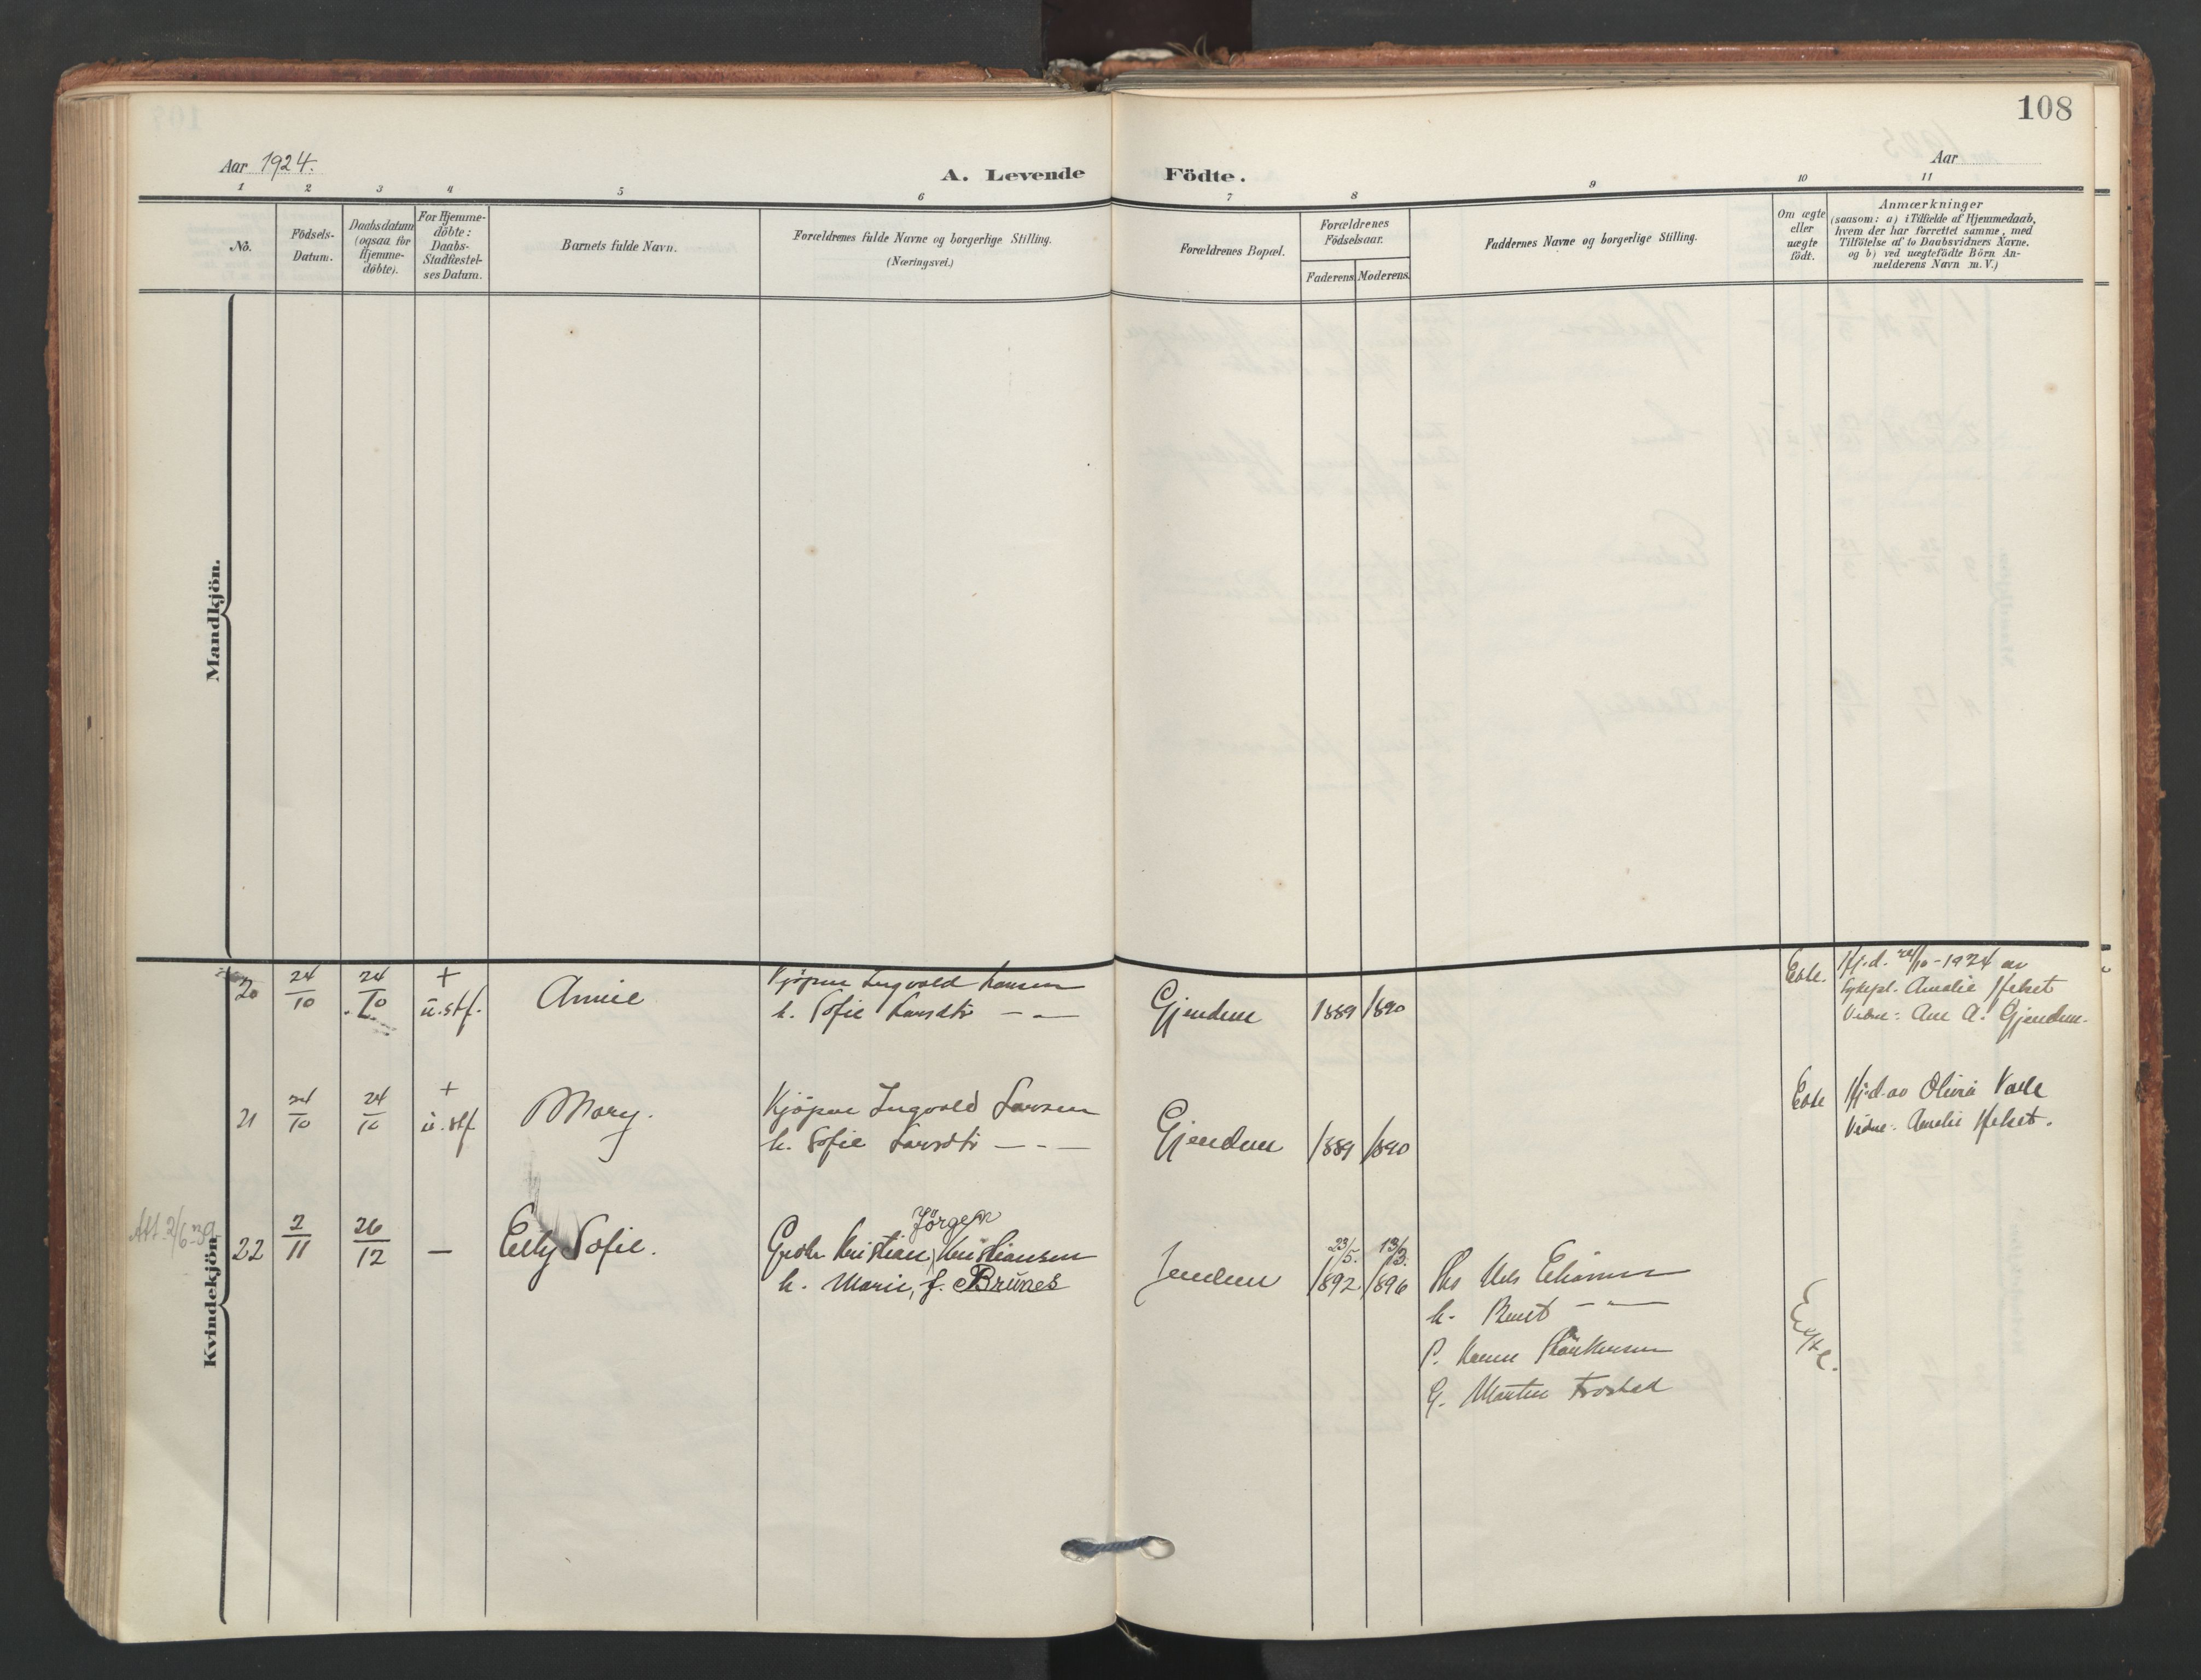 108
Aar 1924.
A. Levende Födte.
Aar
1 2 3 4 5 6 7 8 9 10 11
No.
Födsels-
Datum.
Daabsdatum
(ogsaa for
Hjemme-
döbte).
For Hjemme-
döbte:
Daabs-
Stadfæstel-
ses Datum.
Barnets fulde Navn.
Forældrenes fulde Navne og borgerlige Stilling.
(Næringsvei.)
Forældrenes Bopæl.
Forældrenes
Födselsaar.
Faderens Moderens.
Faddernes Navne og borgerlige Stilling.
Om ægte
eller
uægte
födt.
Anmærkninger
(saasom: a) i Tilfælde af Hjemmedaab,
hvem der har forrettet samme, med
Tilföielse af to Daabsvidners Navne.
og b) ved uægtefödte Börn An-
melderens Navn m. V.)
Mandkjön.
Kvindekjön.
20 24/10 24/10 + u.stf. Annie
Ingvald Larsen
h. Sofie Larsdtr — —
Gjendem 1889 1890
Ekte.
Hj.d. 24/10-1924 av
Sykepl. Amalie Helset
Vidne: Ane A. Gjendem.
21 24/10 24/10 + u.stf Mary.
Ingvald Larsen
h. Sofie Larsdtr — - —
Gjendem 1889 1890
Ekte
Hj.d. av Olivia Valle
Vidne: Amalie Helset.
Att. 2/6-39
22 2/11 26/12 — Elly Sofie.
Jörgen
Kristian Kristiansen
h. Marie, f. Brunes
Jendem
23/5. 1892 13/3. 1896
Nils
h. Beret — —
P. Karen
G. Martin Frostad
Egte.